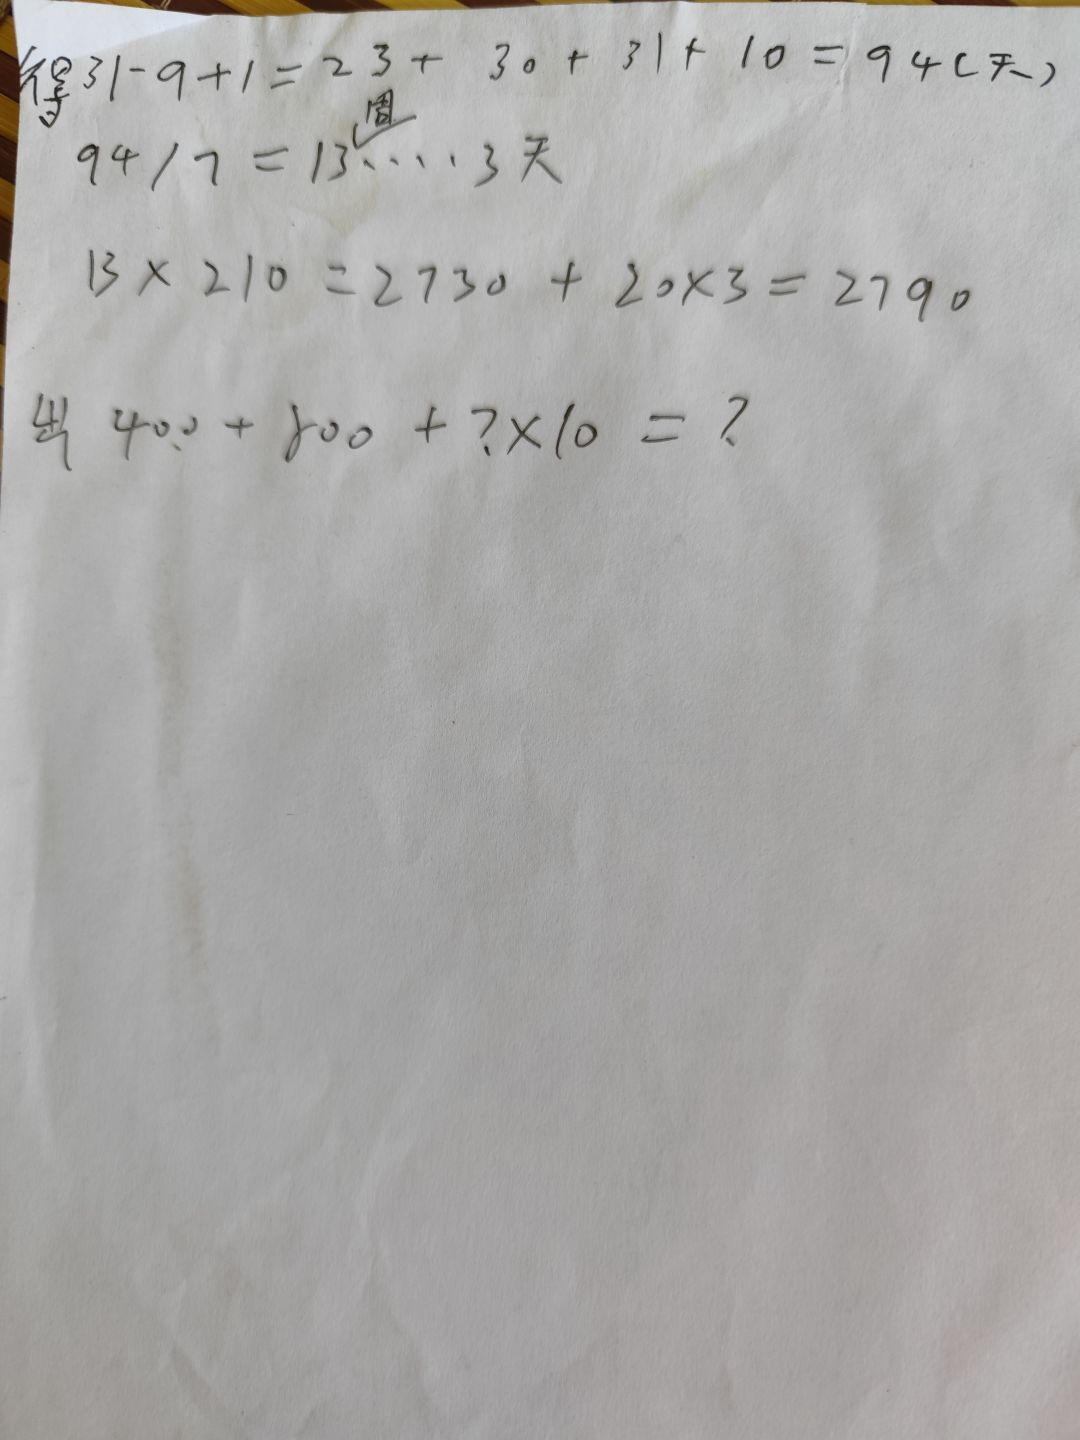 得31-9+1=23+30+31+10=94(天)
周
94/7=13....3天
13×210=2730+20×3=2790
出 400+800+?×10=?